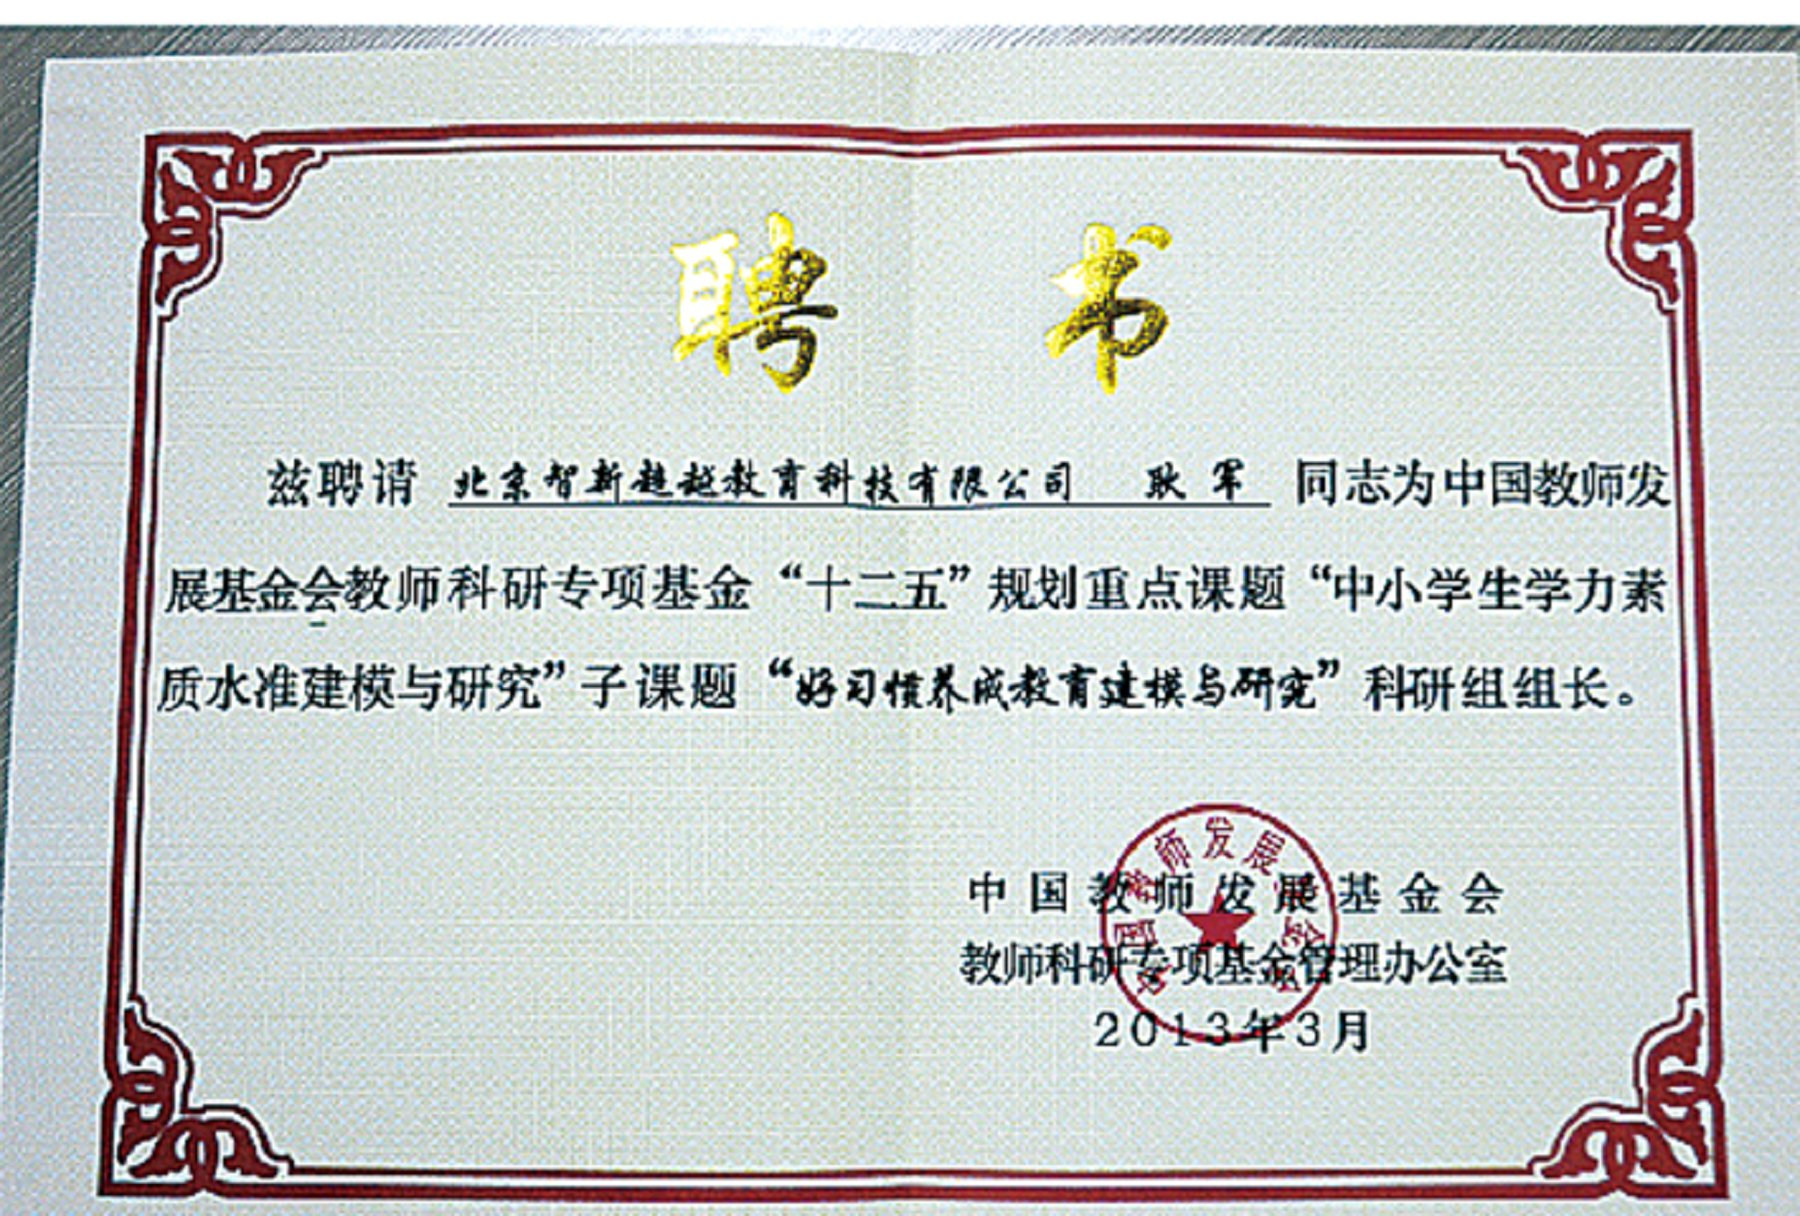 聘 书
兹聘请 北京智新超越教育科技有限公司 耿军 同志为中国教师发
展基金会教师科研专项基金“十二五”规划重点课题“中小学生学力素
质水准建模与研究”子课题“好习惯养成教育建模与研究”科研组组长。
中国教师发展基金会
教师科研专项基金管理办公室
2013年3月
中国教师发展基金会